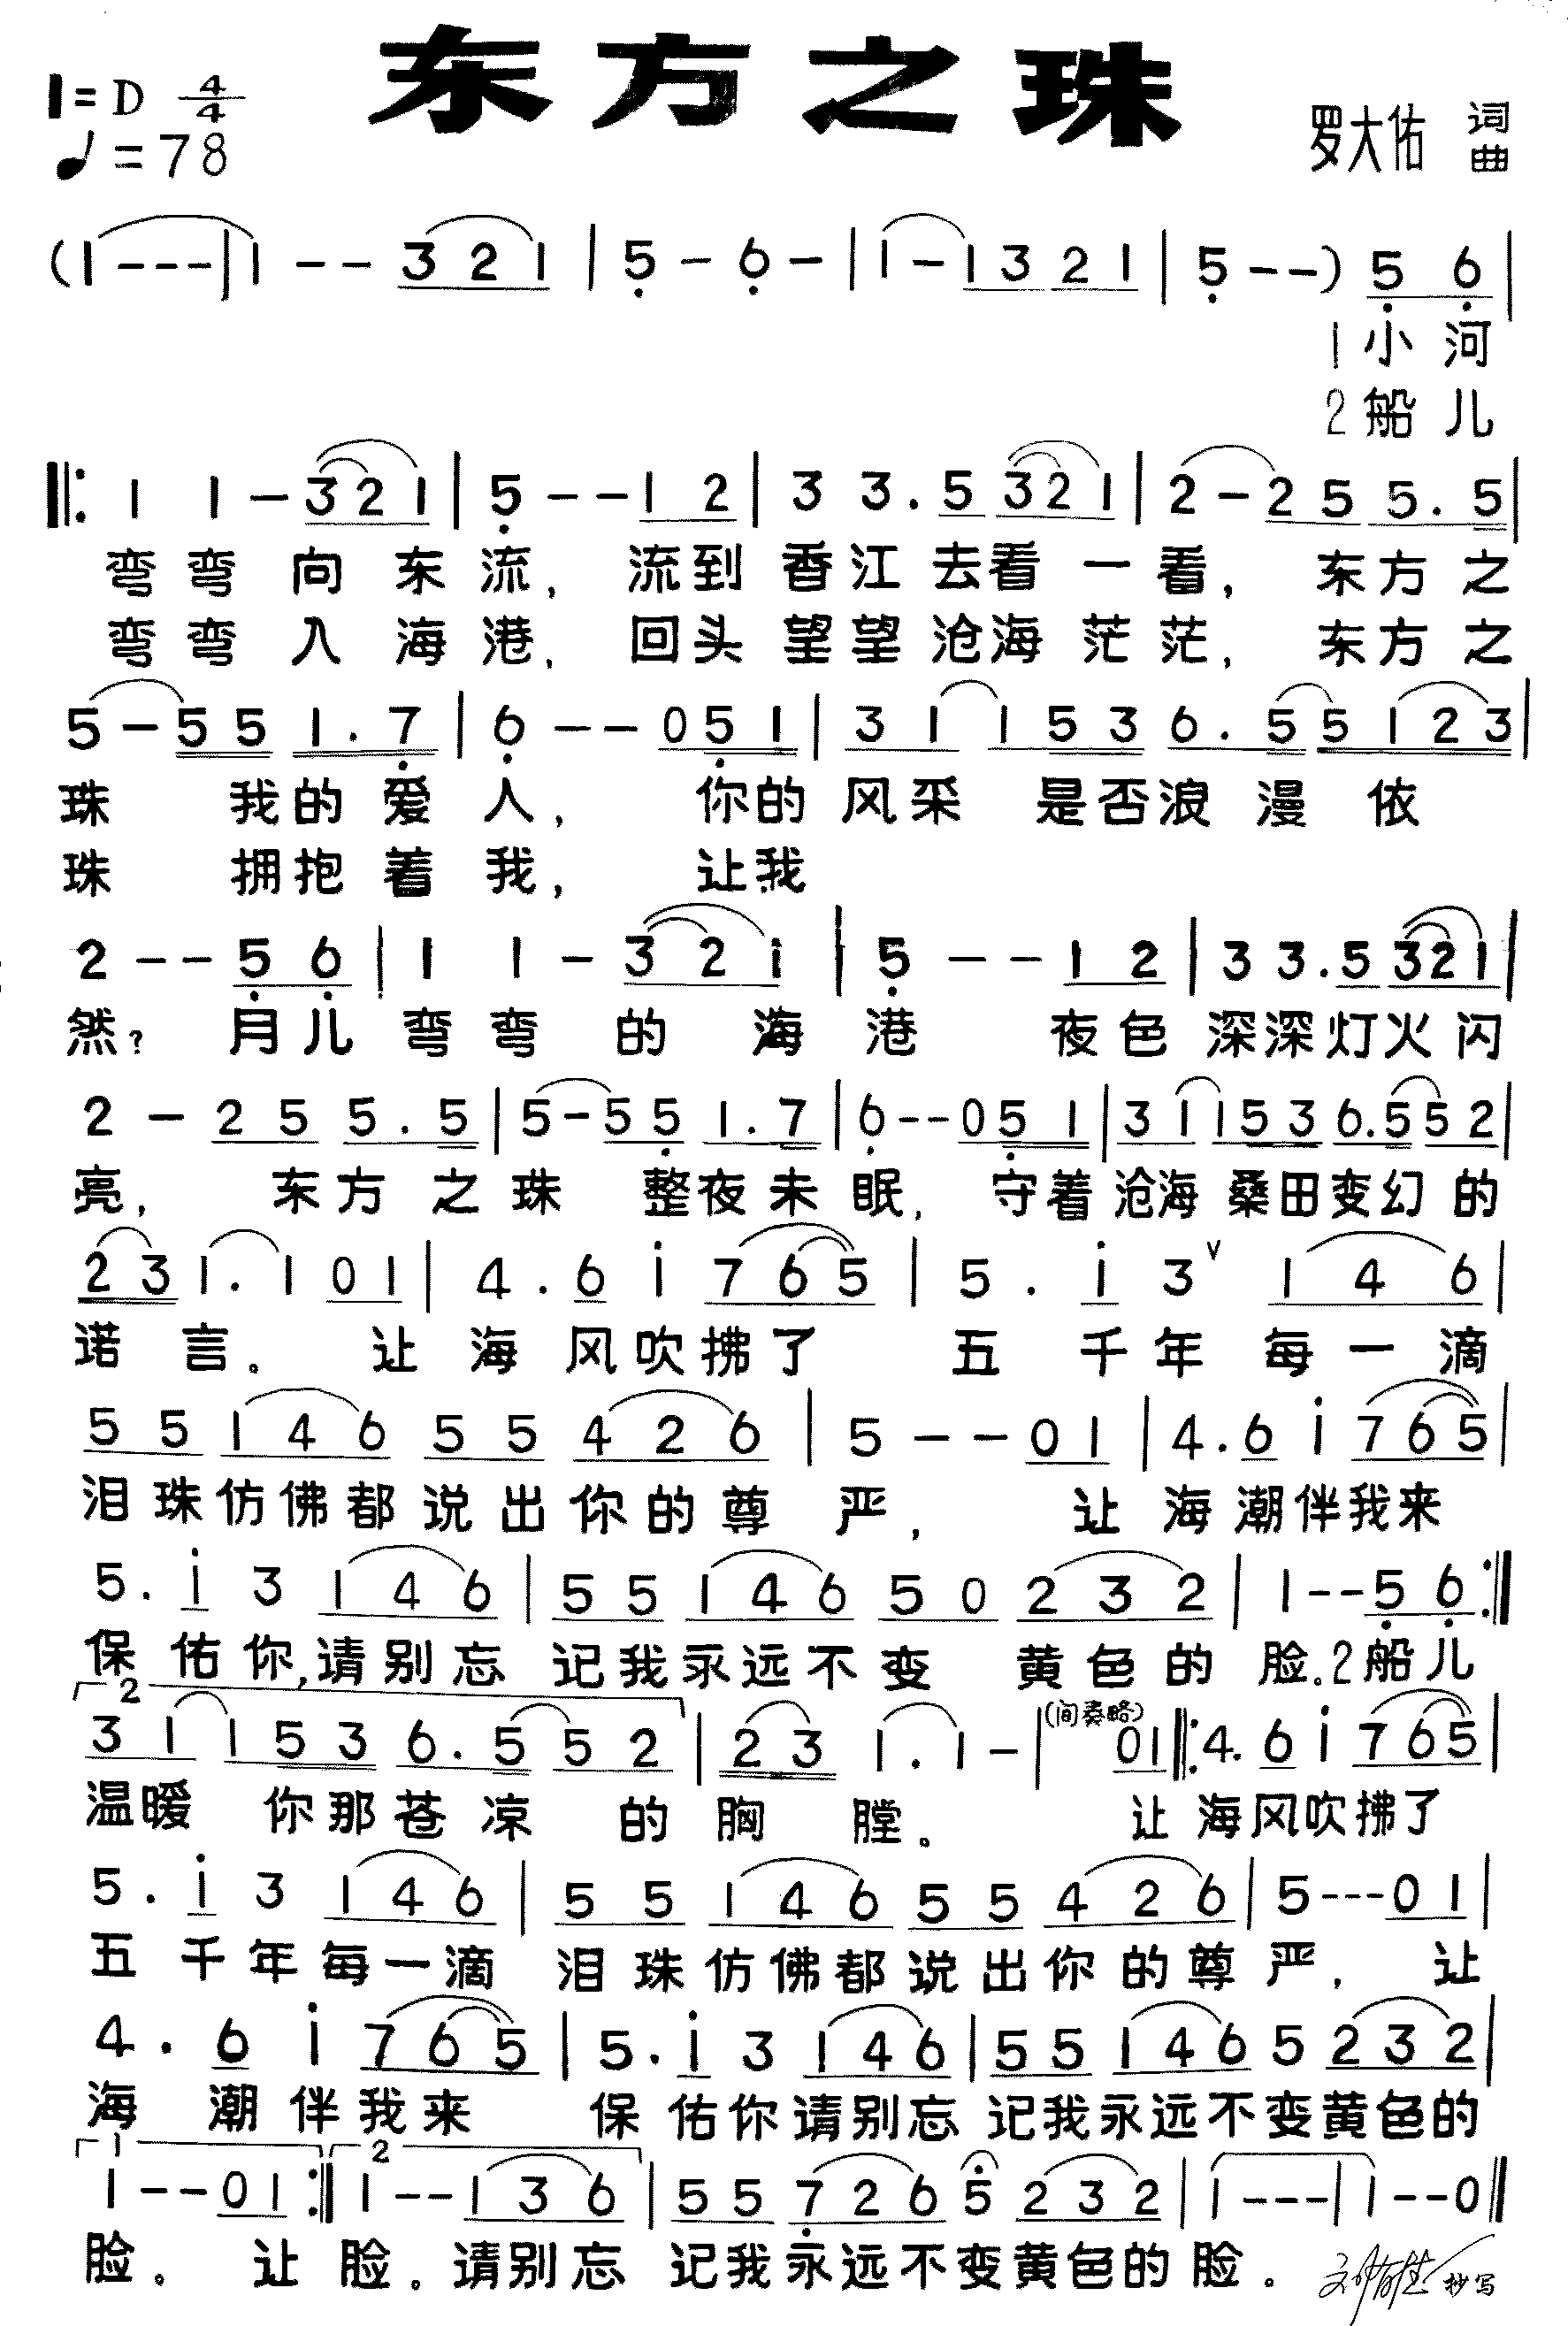 东方之珠
1=D 4/4
♩=78
罗大佑 词曲
(1 - - - | 1 - - 3 2 1 | 5 - 6 - | 1 - 1 3 2 1 | 5 - - ) 5 6 |
1 小 河
2 船 儿
‖: 1 1 - 3 2 1 | 5 - - 1 2 | 3 3 . 5 3 2 1 | 2 - 2 5 5 . 5 |
弯 弯 向 东 流， 流 到 香 江 去 看 一 看， 东 方 之
弯 弯 入 海 港， 回 头 望 望 沧 海 茫 茫， 东 方 之
5 - 5 5 1 . 7 | 6 - - 0 5 1 | 3 1 1 5 3 6 . 5 5 1 2 3 |
珠 我 的 爱 人， 你 的 风 采 是 否 浪 漫 依
珠 拥 抱 着 我， 让 我
2 - - 5 6 | 1 1 - 3 2 1 | 5 - - 1 2 | 3 3 . 5 3 2 1 |
然？ 月 儿 弯 弯 的 海 港 夜 色 深 深 灯 火 闪
2 - 2 5 5 . 5 | 5 - 5 5 1 . 7 | 6 - - 0 5 1 | 3 1 1 5 3 6 . 5 5 2 |
亮， 东 方 之 珠 整 夜 未 眠， 守 着 沧 海 桑 田 变 幻 的
2 3 1 . 1 0 1 | 4 . 6 i 7 6 5 | 5 . i 3 ∨ 1 4 6 |
诺 言。 让 海 风 吹 拂 了 五 千 年 每 一 滴
5 5 1 4 6 5 5 4 2 6 | 5 - - 0 1 | 4 . 6 i 7 6 5 |
泪 珠 仿 佛 都 说 出 你 的 尊 严， 让 海 潮 伴 我 来
5 . i 3 1 4 6 | 5 5 1 4 6 5 0 2 3 2 | 1 - - 5 6 :‖
保 佑 你，请 别 忘 记 我 永 远 不 变 黄 色 的 脸。2 船 儿
2
3 1 1 5 3 6 . 5 5 2 | 2 3 1 . 1 - | (间奏略) 0 1 ‖: 4 . 6 i 7 6 5 |
温 暖 你 那 苍 凉 的 胸 膛。 让 海 风 吹 拂 了
5 . i 3 1 4 6 | 5 5 1 4 6 5 5 4 2 6 | 5 - - - 0 1 |
五 千 年 每 一 滴 泪 珠 仿 佛 都 说 出 你 的 尊 严， 让
4 . 6 i 7 6 5 | 5 . i 3 1 4 6 | 5 5 1 4 6 5 2 3 2 |
海 潮 伴 我 来 保 佑 你 请 别 忘 记 我 永 远 不 变 黄 色 的
1 2
1 - - 0 1 :‖ 1 - - 1 3 6 | 5 5 7 2 6 5 2 3 2 | 1 - - - | 1 - - 0 ‖
脸。 让 脸。请 别 忘 记 我 永 远 不 变 黄 色 的 脸。
抄写